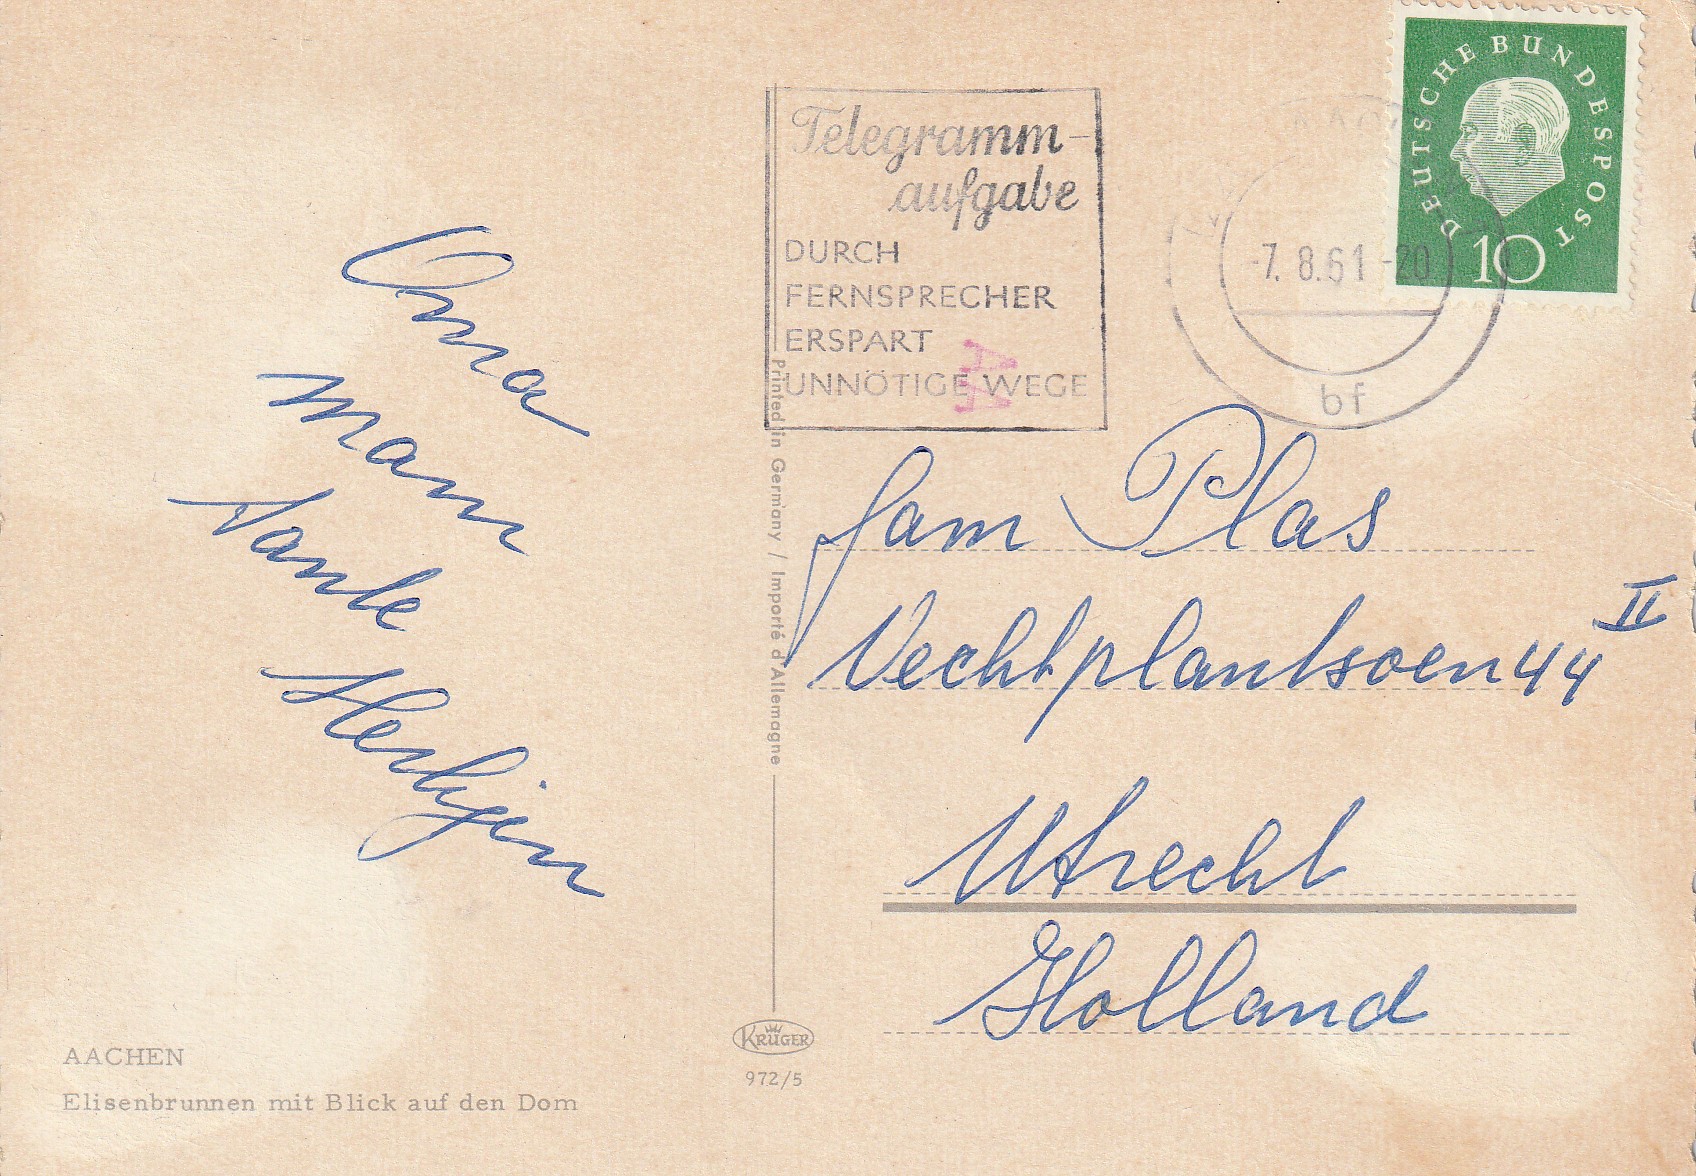 DEUTSCHE BUNDESPOST
10
Telegramm-
aufgabe
DURCH
FERNSPRECHER
ERSPART
UNNÖTIGE WEGE
-7. 8.61 -20
bf
AA
Oma
Mam
Tante
Fam Plas
Vechtplantsoen 44 II
Utrecht
Holland
Printed in Germany / Importé d'Allemagne
KRÜGER
972/5
AACHEN
Elisenbrunnen mit Blick auf den Dom